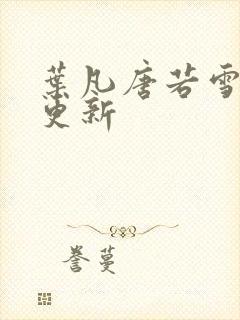 葉凡唐若雪
更新
誉蔓